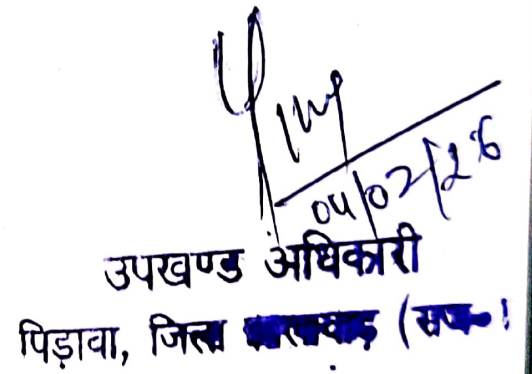 04/02/26
उपखण्ड अधिकारी
पिड़ावा, जिला (राज०)